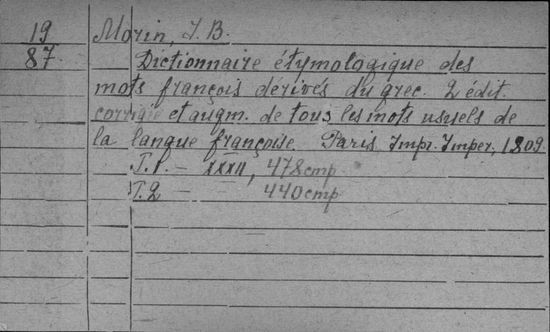 19
87
Morin, J. B.
Dictionnaire étymologique des
mots françois dérivés du grec. 2 édit.
corrigée et augm. de tous les mots usuels de
la langue françoise. Paris, Impr. Imper, 1809
T. 1. – XXXII, 478 стр
T. 2 – 440 стр